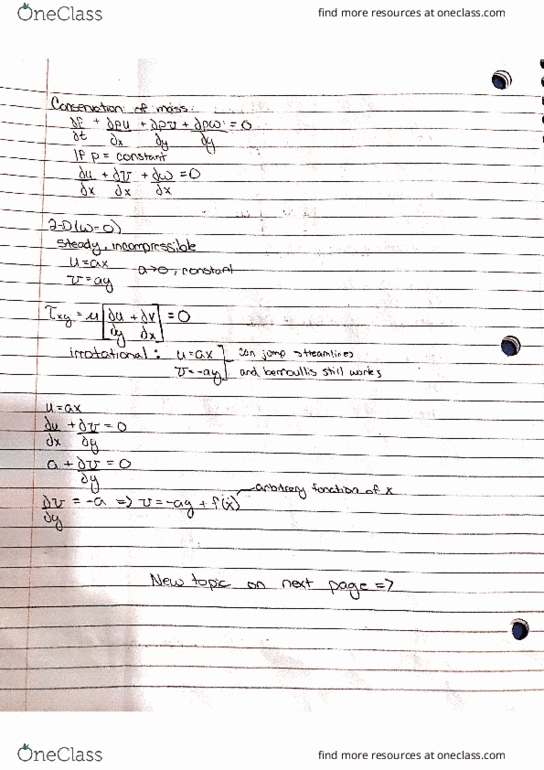 OneClass find more resources at oneclass.com
Conservation of mass:
∂ρ/∂t + ∂ρu/∂x + ∂ρv/∂y + ∂ρw/∂y = 0
If ρ = constant
∂u/∂x + ∂v/∂x + ∂w/∂x = 0
2-D (w=0)
Steady, incompressible
u=ax a>0, constant
v=ay
τxy = μ[∂u/∂y + ∂v/∂x] = 0
irrotational: u=ax can jump streamlines
v=-ay and bernoullis still works
u=ax
∂u/∂x + ∂v/∂y = 0
a + ∂v/∂y = 0
arbitrary function of x
∂v/∂y = -a => v = -ay + f(x)
New topic on next page =>
OneClass find more resources at oneclass.com